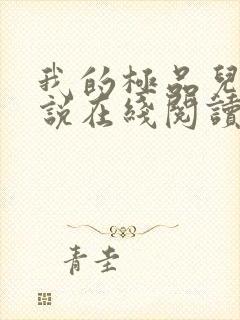 我的極品兒
說在綫閱讀
青圭